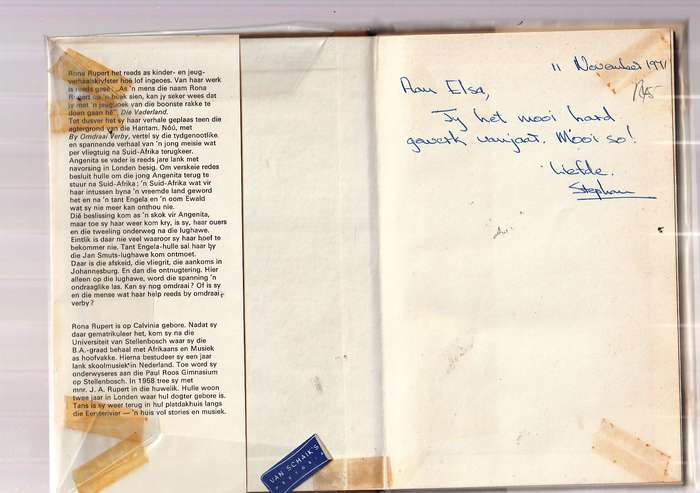 Rona Rupert het reeds as kinder- en jeug-
verhaalskryfster hoë lof ingeoes. Van haar werk
is reeds gesê: „As 'n mens die naam Rona
Rupert op 'n boek sien, kan jy seker wees dat
jy met 'n jeugboek van die boonste rakke te
doen gaan hê". Die Vaderland.
Tot dusver het sy haar verhale geplaas teen die
agtergrond van die Hantam. Nóú, met
By Omdraai Verby, vertel sy die tydgenootlike
en spannende verhaal van 'n jong meisie wat
per vliegtuig na Suid-Afrika terugkeer.
Angenita se vader is reeds jare lank met
navorsing in Londen besig. Om verskeie redes
besluit hulle om die jong Angenita terug te
stuur na Suid-Afrika: 'n Suid-Afrika wat vir
haar intussen byna 'n vreemde land geword
het en na 'n tant Engela en 'n oom Ewald
wat sy nie meer kan onthou nie.
Dié beslissing kom as 'n skok vir Angenita,
maar toe sy haar weer kom kry, is sy, haar ouers
en die tweeling onderweg na die lughawe.
Eintlik is daar nie veel waaroor sy haar hoef te
bekommer nie. Tant Engela-hulle sal haar by
die Jan Smuts-lughawe kom ontmoet.
Daar is die afskeid, die vliegrit, die aankoms in
Johannesburg. En dan die ontnugtering. Hier
alleen op die lughawe, word die spanning 'n
ondraaglike las. Kan sy nog omdraai? Of is sy
en die mense wat haar help reeds by omdraai
verby?
Rona Rupert is op Calvinia gebore. Nadat sy
daar gematrikuleer het, kom sy na die
Universiteit van Stellenbosch waar sy die
B.A.-graad behaal met Afrikaans en Musiek
as hoofvakke. Hierna bestudeer sy een jaar
lank skoolmusiek in Nederland. Toe word sy
onderwyseres aan die Paul Roos Gimnasium
op Stellenbosch. In 1958 tree sy met
mnr. J. A. Rupert in die huwelik. Hulle woon
twee jaar in Londen waar hul dogter gebore is.
Tans is sy weer terug in hul platdakhuis langs
die Eersterivier — 'n huis vol stories en musiek.
VAN SCHAIK'S
PRETORIA
11 November 1971
Aan Elsa,
Jy het mooi hard
gewerk vanjaar. Mooi so!
Liefde.
Stephan